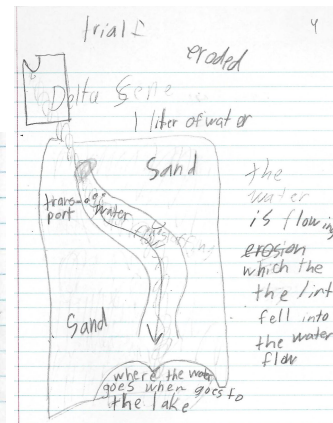 Trial 1
4
eroded
Delta
1 liter of water
Sand
trans-
port
water
the
water
is flowing
erosion
which the
the lint
fell into
the water
flow
Sand
where the water
goes when goes to
the lake